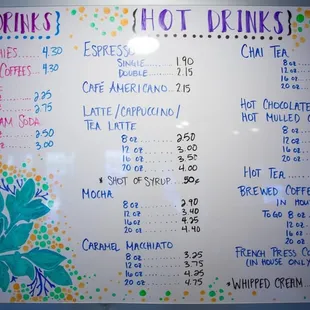 DRINKS}
HIES.... 4.30
COFFEES.... 4.30
2.25
2.75
AM SODA
2.50
3.00
{HOT DRINKS}
ESPRESSO
SINGLE 1.90
DOUBLE 2.15
CAFÉ AMERICANO 2.15
LATTE/CAPPUCCINO/
TEA LATTE
8 OZ 2.50
12 OZ 3.00
16 OZ 3.50
20 OZ 4.00
* SHOT OF SYRUP 50¢
MOCHA
8 OZ 2.90
12 OZ 3.40
16 OZ 4.25
20 OZ 4.40
CARAMEL MACCHIATO
8 OZ 3.25
12 OZ 3.75
16 OZ 4.25
20 OZ 4.75
CHAI TEA
8 OZ
12 OZ
16 OZ
20 OZ
HOT CHOCOLATE
HOT MULLED C
8 OZ
12 OZ
16 OZ
20 OZ
HOT TEA
BREWED COFFE
IN HOUSE
TO GO 8 OZ
12 OZ
16 OZ
20 OZ
FRENCH PRESS CO
(IN HOUSE ONLY)
*WHIPPED CREAM